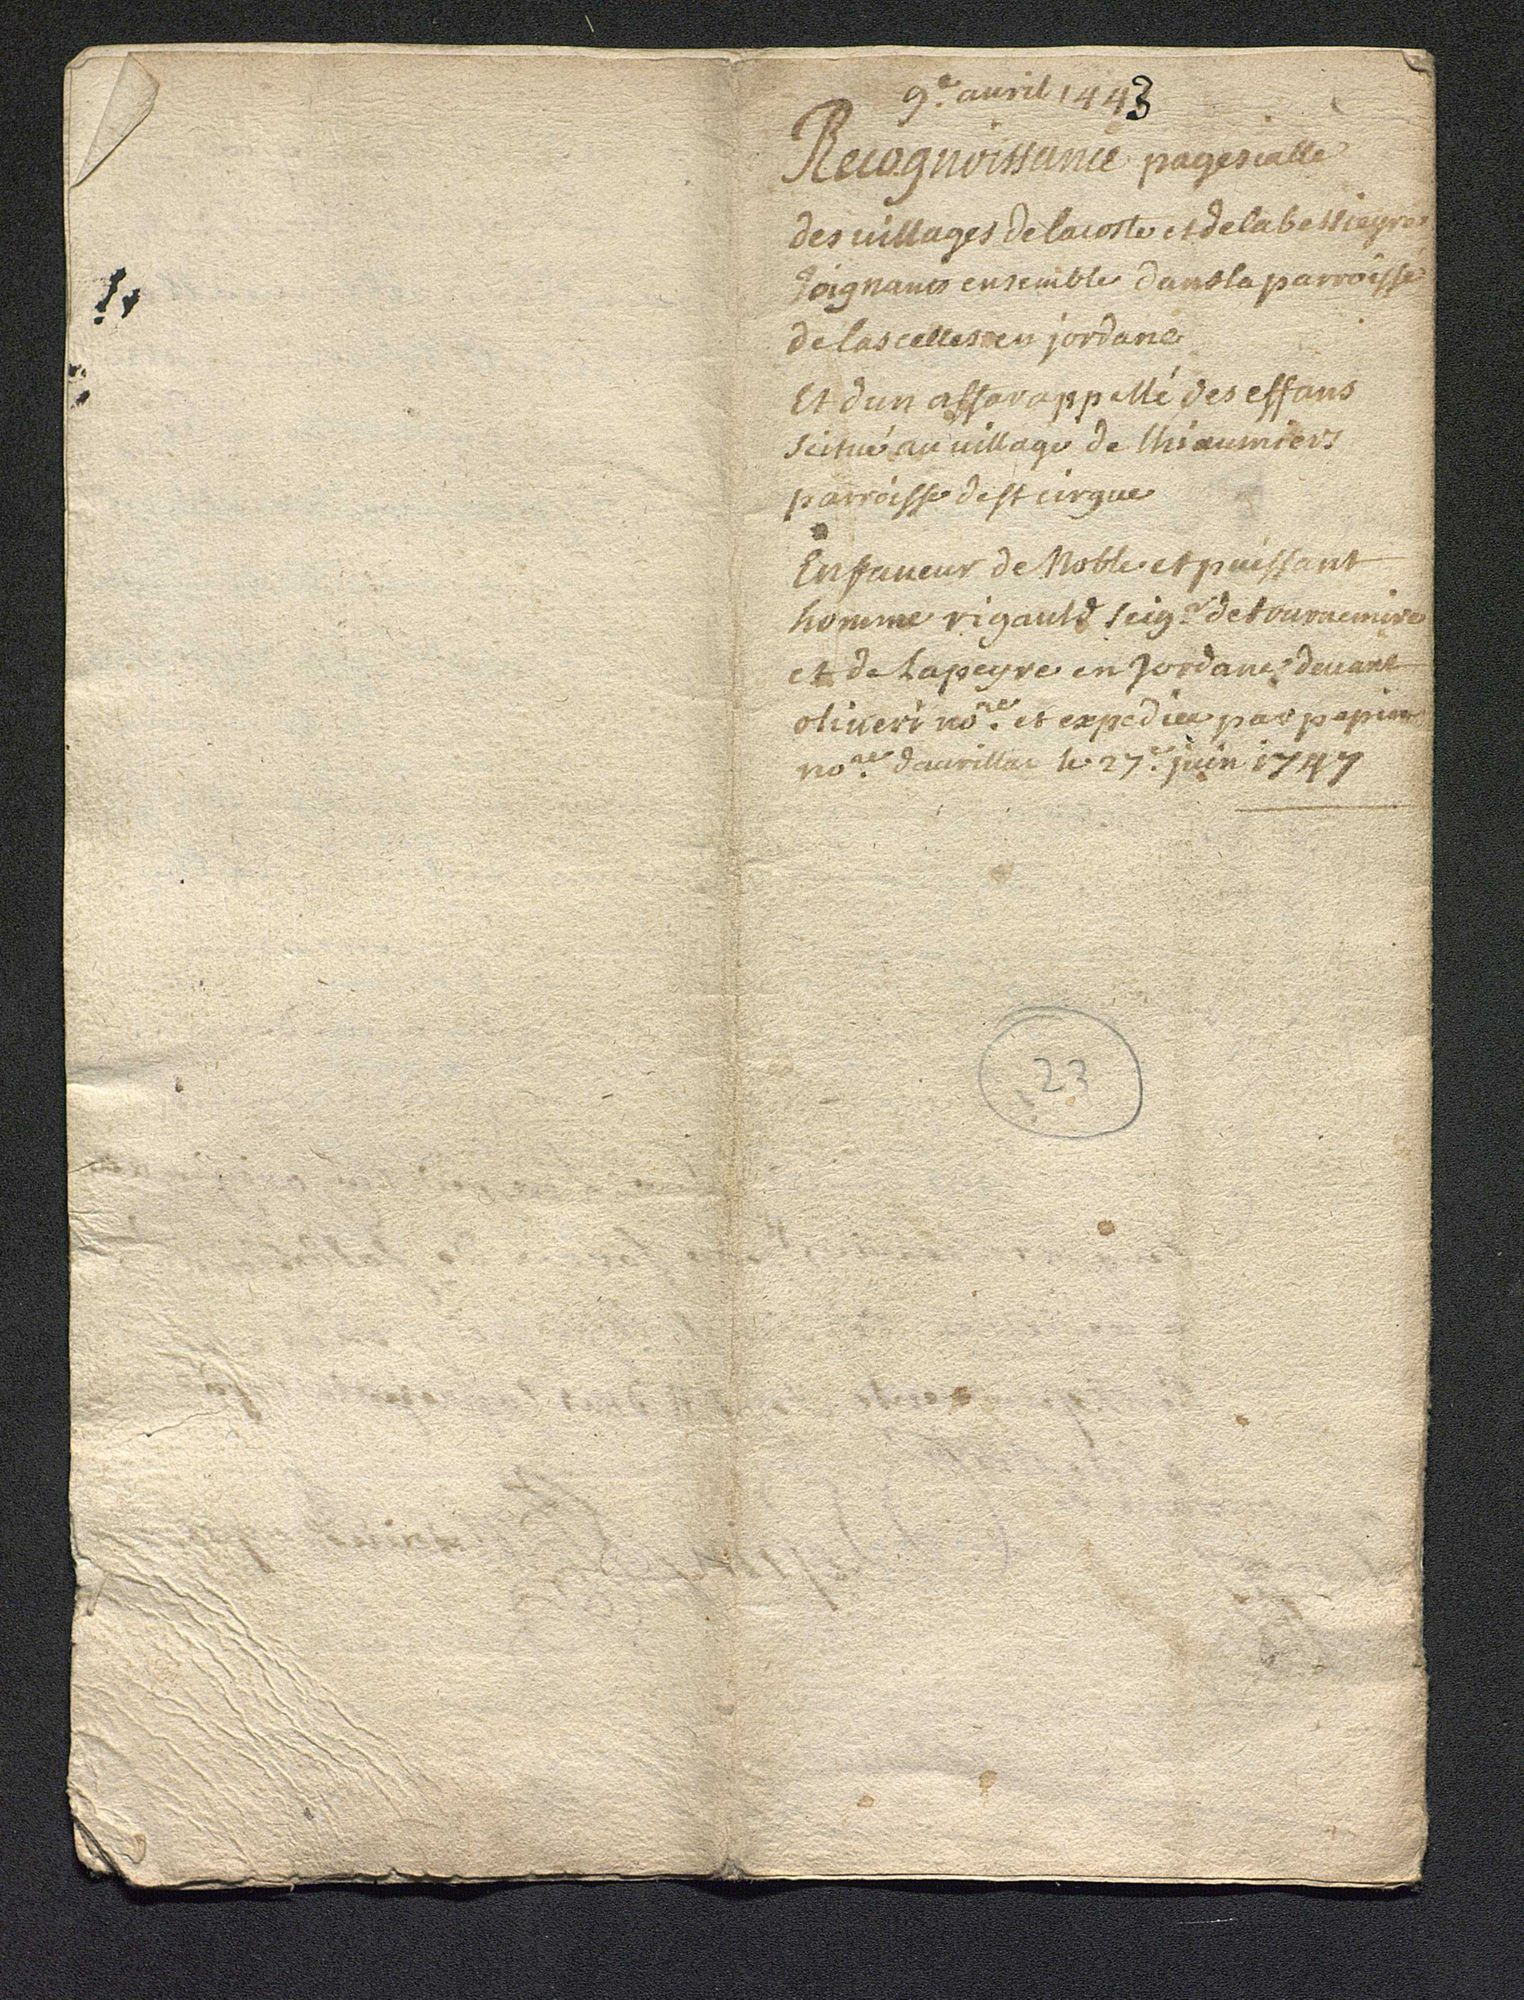 9e. auril 1443
Recognoissance pagesialle
des uillages de lacoste et de labessieyre
Joignants ensemble dans la parroisse
de lascelles en jordane
Et dun affar appellé des effans
scitué au uillage de
parroisse de st cirgue
En faueur de Noble et puissant
homme rigauld seigr. de tournemire
et de Lapeyre en Jordane deuant
oliueri nore. et expediee par pepin
nore. daurillac le 27e. juin 1747
23